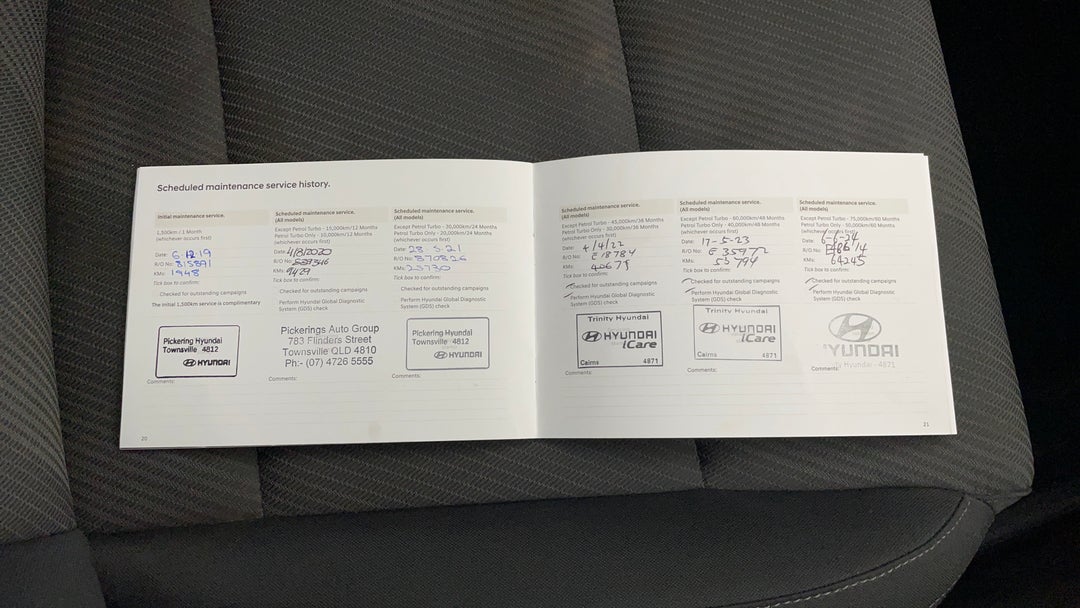 Scheduled maintenance service history.
Initial maintenance service.
1,500km / 1 Month
(whichever occurs first)
Date: 6.12.19
R/O No: 815891
KMs: 1948
Tick box to confirm:
Checked for outstanding campaigns
The initial 1,500km service is complimentary
Pickering Hyundai
Townsville 4812
HYUNDAI
Comments:
Scheduled maintenance service.
(All models)
Except Petrol Turbo - 15,000km/12 Months
Petrol Turbo Only - 10,000km/12 Months
(whichever occurs first)
Date: 4/8/2020
R/O No:
KMs: 9429
Tick box to confirm:
Checked for outstanding campaigns
Perform Hyundai Global Diagnostic
System (GDS) check
Pickerings Auto Group
783 Flinders Street
Townsville QLD 4810
Ph:- (07) 4726 5555
Comments:
Scheduled maintenance service.
(All models)
Except Petrol Turbo - 30,000km/24 Months
Petrol Turbo Only - 20,000km/24 Months
(whichever occurs first)
Date: 28.5.21
R/O No: 870826
KMs: 25730
Tick box to confirm:
Checked for outstanding campaigns
Perform Hyundai Global Diagnostic
System (GDS) check
Pickering Hyundai
Townsville 4812
HYUNDAI
Comments:
20
Scheduled maintenance service.
(All models)
Except Petrol Turbo - 45,000km/36 Months
Petrol Turbo Only - 30,000km/36 Months
(whichever occurs first)
Date: 4/4/22
R/O No: E18784
KMs: 40679
Tick box to confirm:
Checked for outstanding campaigns
Perform Hyundai Global Diagnostic
System (GDS) check
Trinity Hyundai
HYUNDAI
iCare
Cairns 4871
Comments:
Scheduled maintenance service.
(All models)
Except Petrol Turbo - 60,000km/48 Months
Petrol Turbo Only - 40,000km/48 Months
(whichever occurs first)
Date: 17-5-23
R/O No: E35972
KMs: 55794
Tick box to confirm:
Checked for outstanding campaigns
Perform Hyundai Global Diagnostic
System (GDS) check
Trinity Hyundai
HYUNDAI
iCare
Cairns 4871
Comments:
Scheduled maintenance service.
(All models)
Except Petrol Turbo - 75,000km/60 Months
Petrol Turbo Only - 50,000km/60 Months
(whichever occurs first)
Date:
R/O No:
KMs: 64245
Tick box to confirm:
Checked for outstanding campaigns
Perform Hyundai Global Diagnostic
System (GDS) check
YUNDAI
Hyundai - 4871
Comments:
21